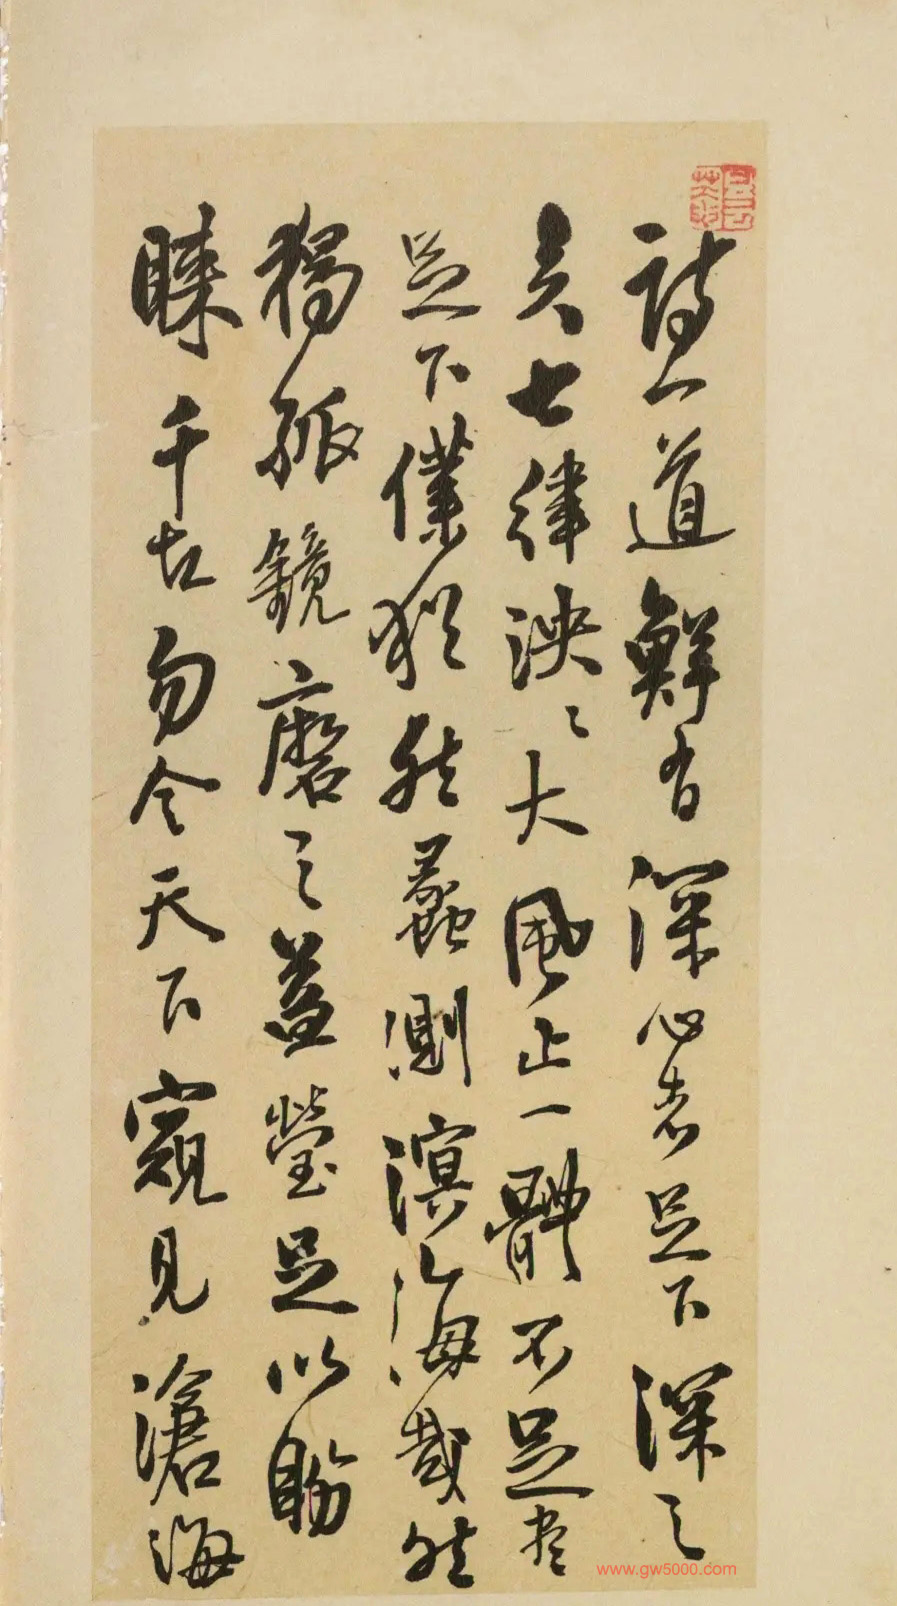 詩一道鮮有深心者足下深之
矣七律泱〻大風止一體不足盡
足下僕猶然蠡測溟海哉然
獨孤鏡磨之益瑩足以盼
睞千古勿令天下窺見滄海
www.gw5000.com